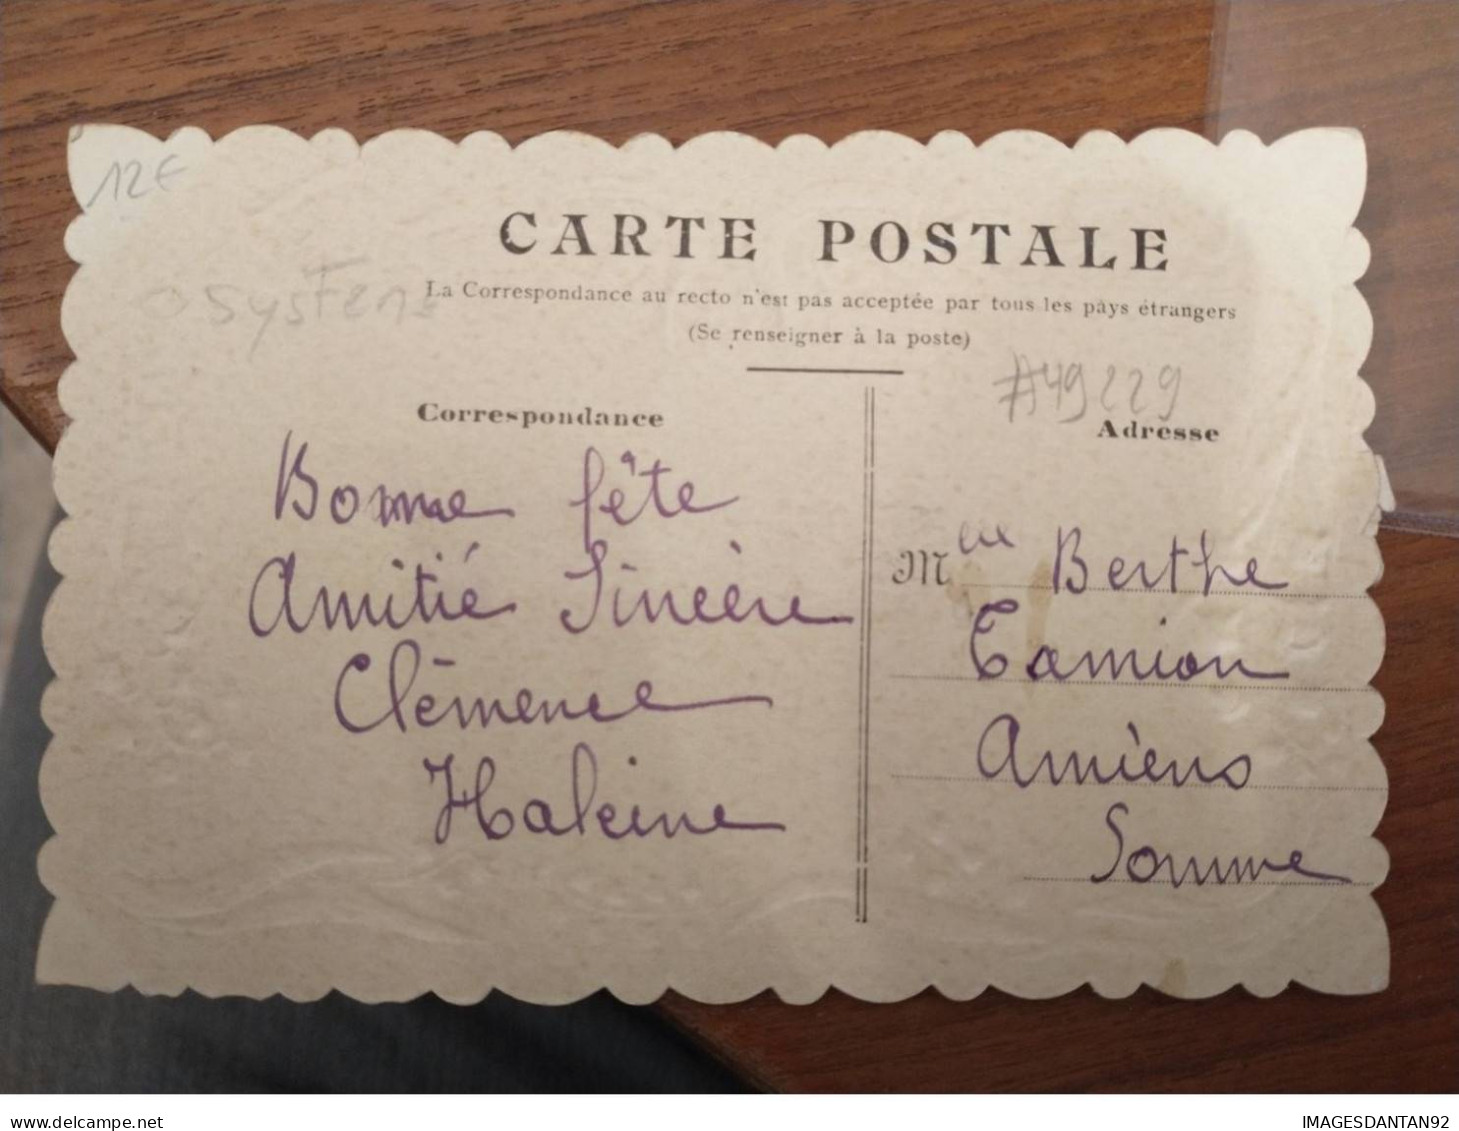 12€
CARTE POSTALE
La Correspondance au recto n'est pas acceptée par tous les pays étrangers
(Se renseigner à la poste)
#49229
Correspondance
Bonne fête
Amitié Sincère
Clémence
Adresse
Melle Berthe
Tamion
Amiens
Somme
delcampe.net
IMAGESDANTAN92